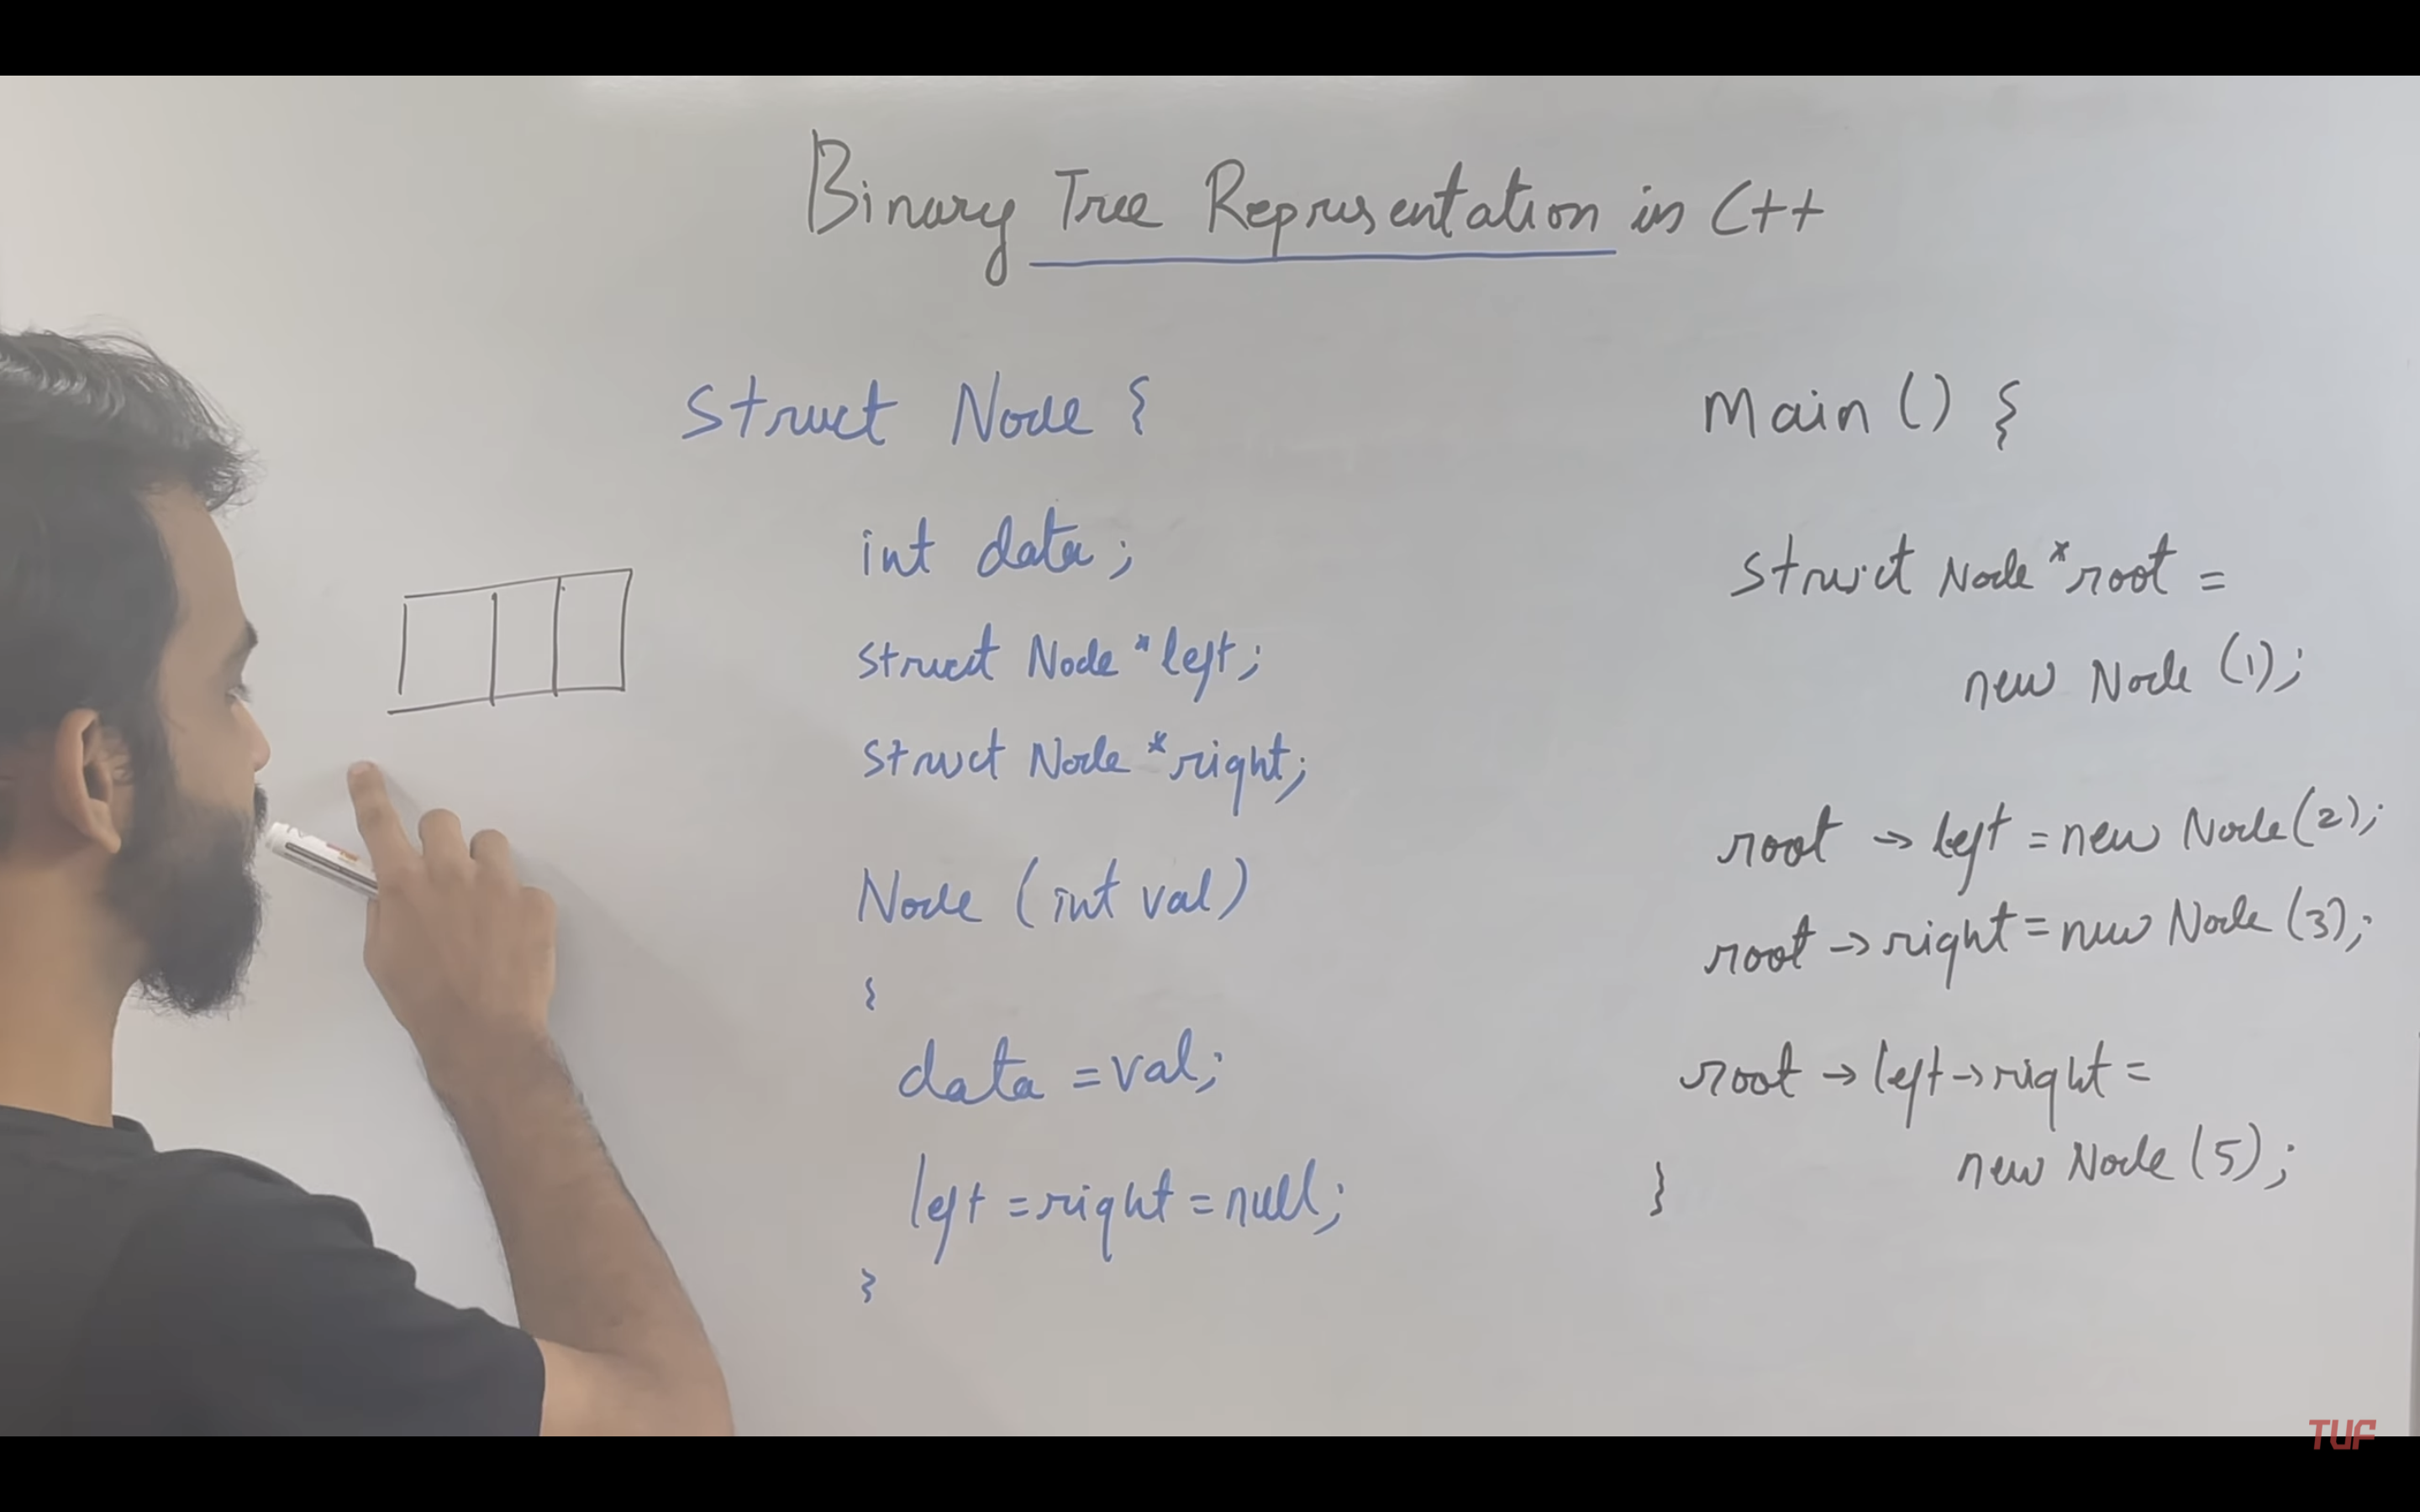 Binary Tree Representation in C++
Struct Node {
int data;
struct Node *left;
struct Node *right;
Node (int val)
{
data = val;
left = right = null;
}
Main () {
struct Node *root =
new Node (1);
root → left = new Node (2);
root → right = new Node (3);
root → left → right =
new Node (5);
}
TUF